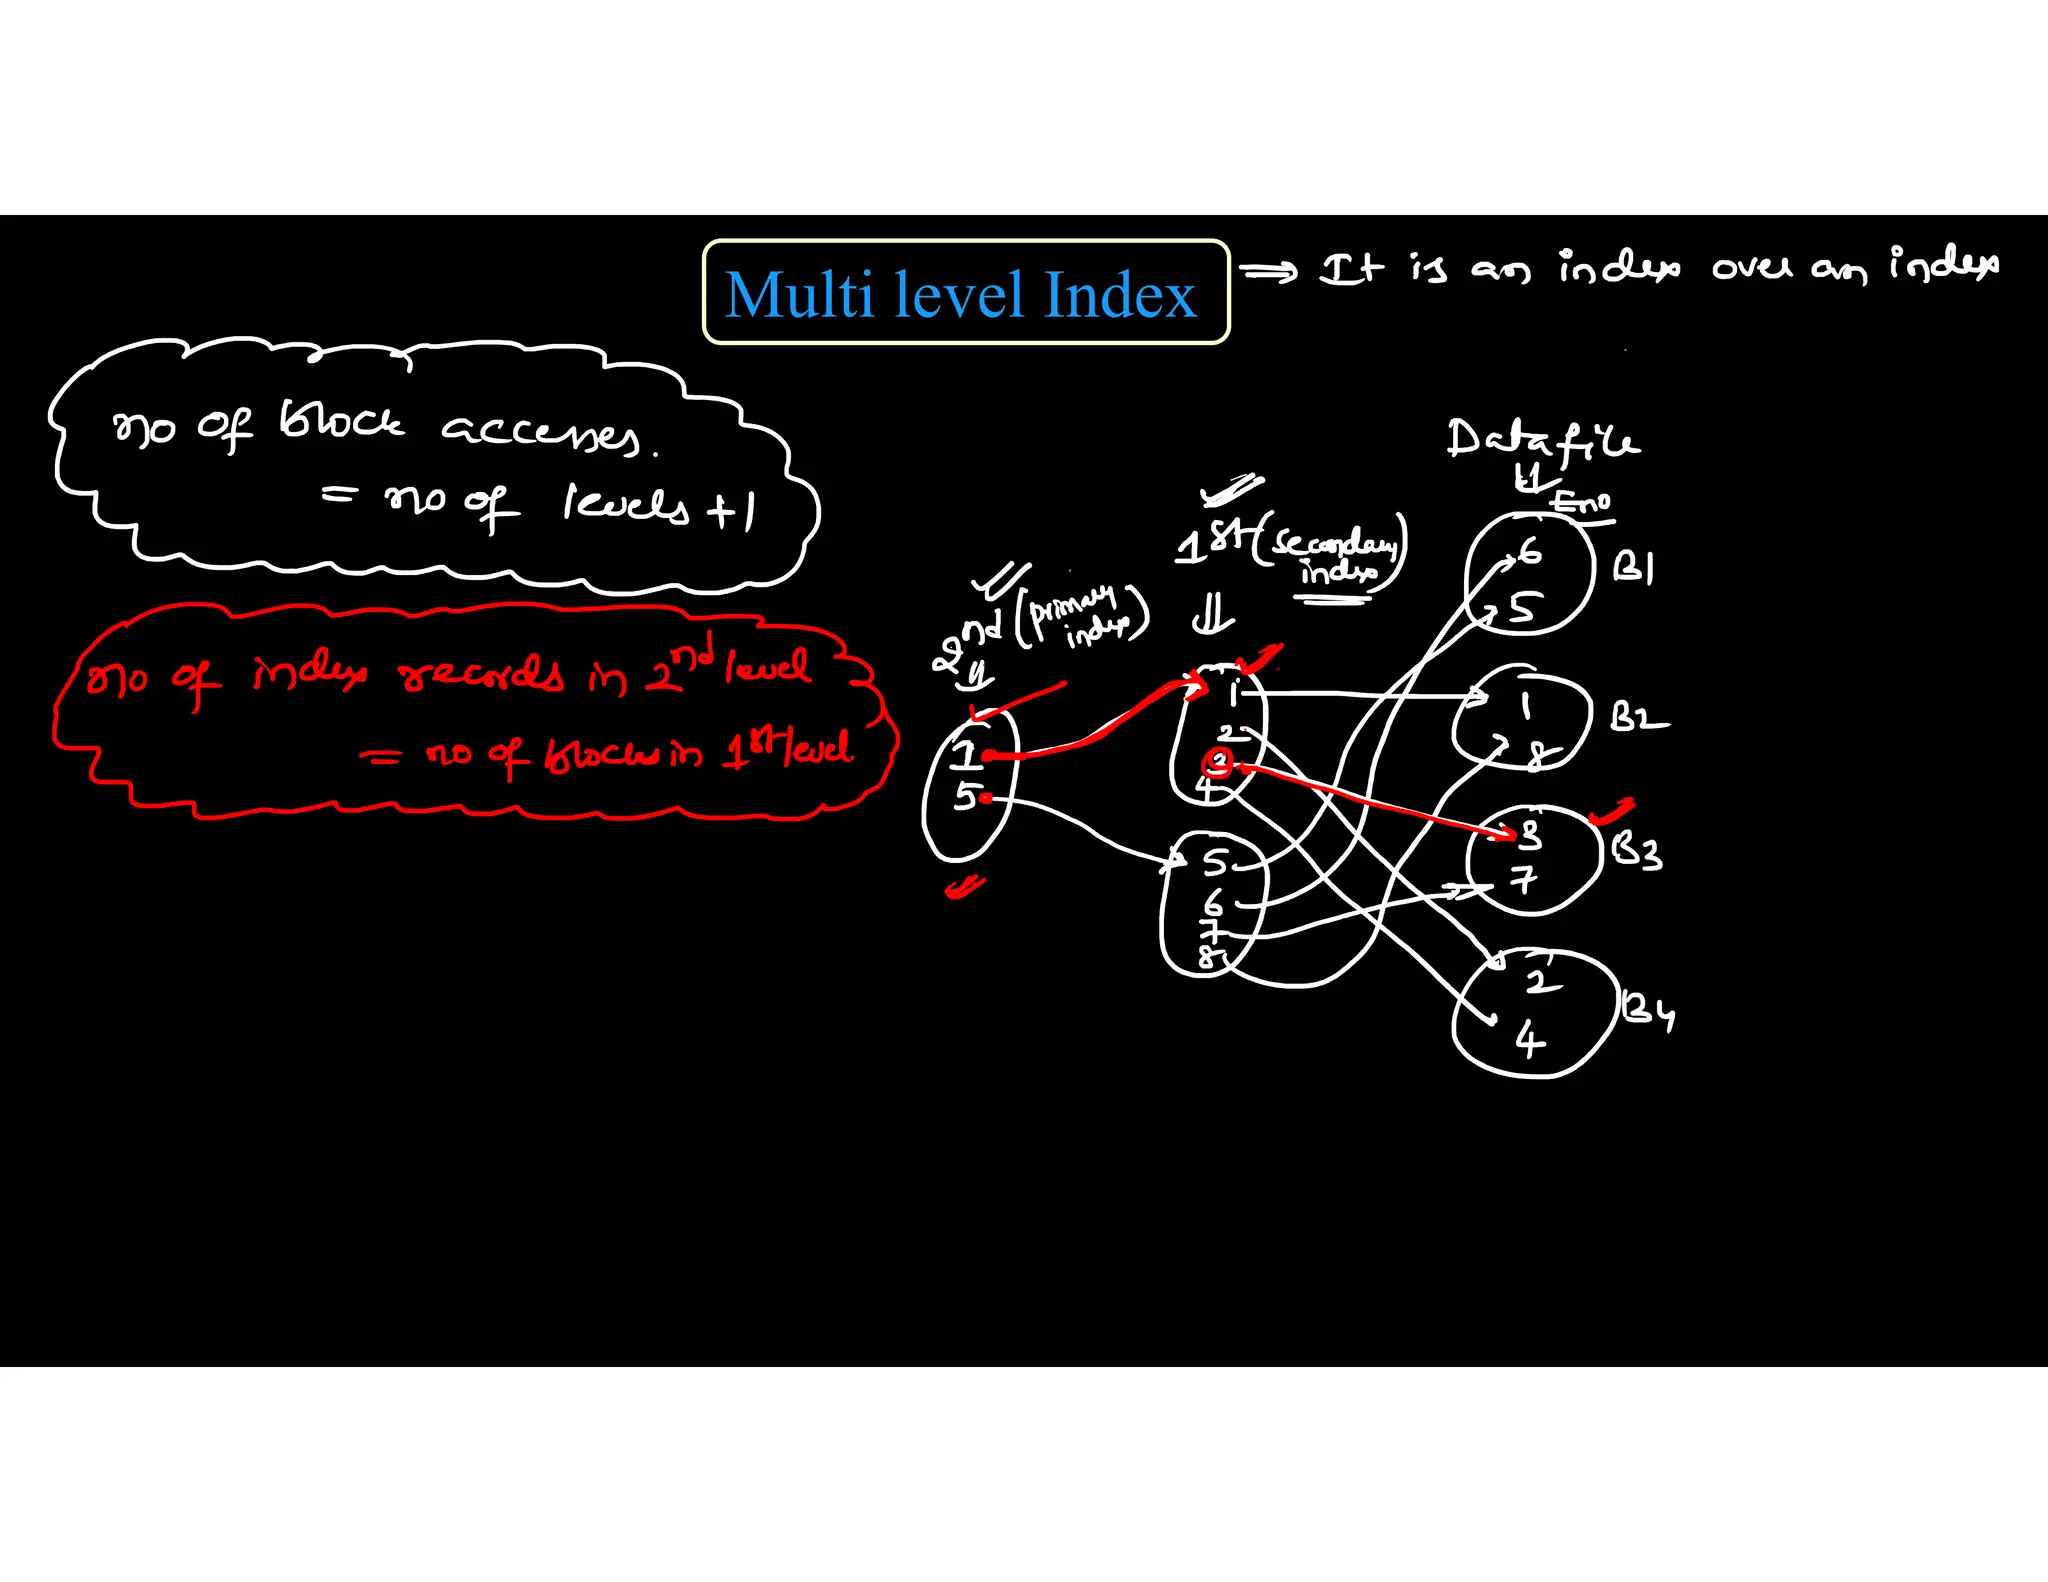 Multi level Index ⇒ It is an index over an index
no of block accesses.
= no of levels + 1
no of index records in 2nd level
= no of blocks in 1st level
2nd (primary index)
1
5
1st (secondary index)
1
2
3
4
5
6
7
8
Datafile
Eno
6
5
B1
1
8
B2
3
7
B3
2
4
B4